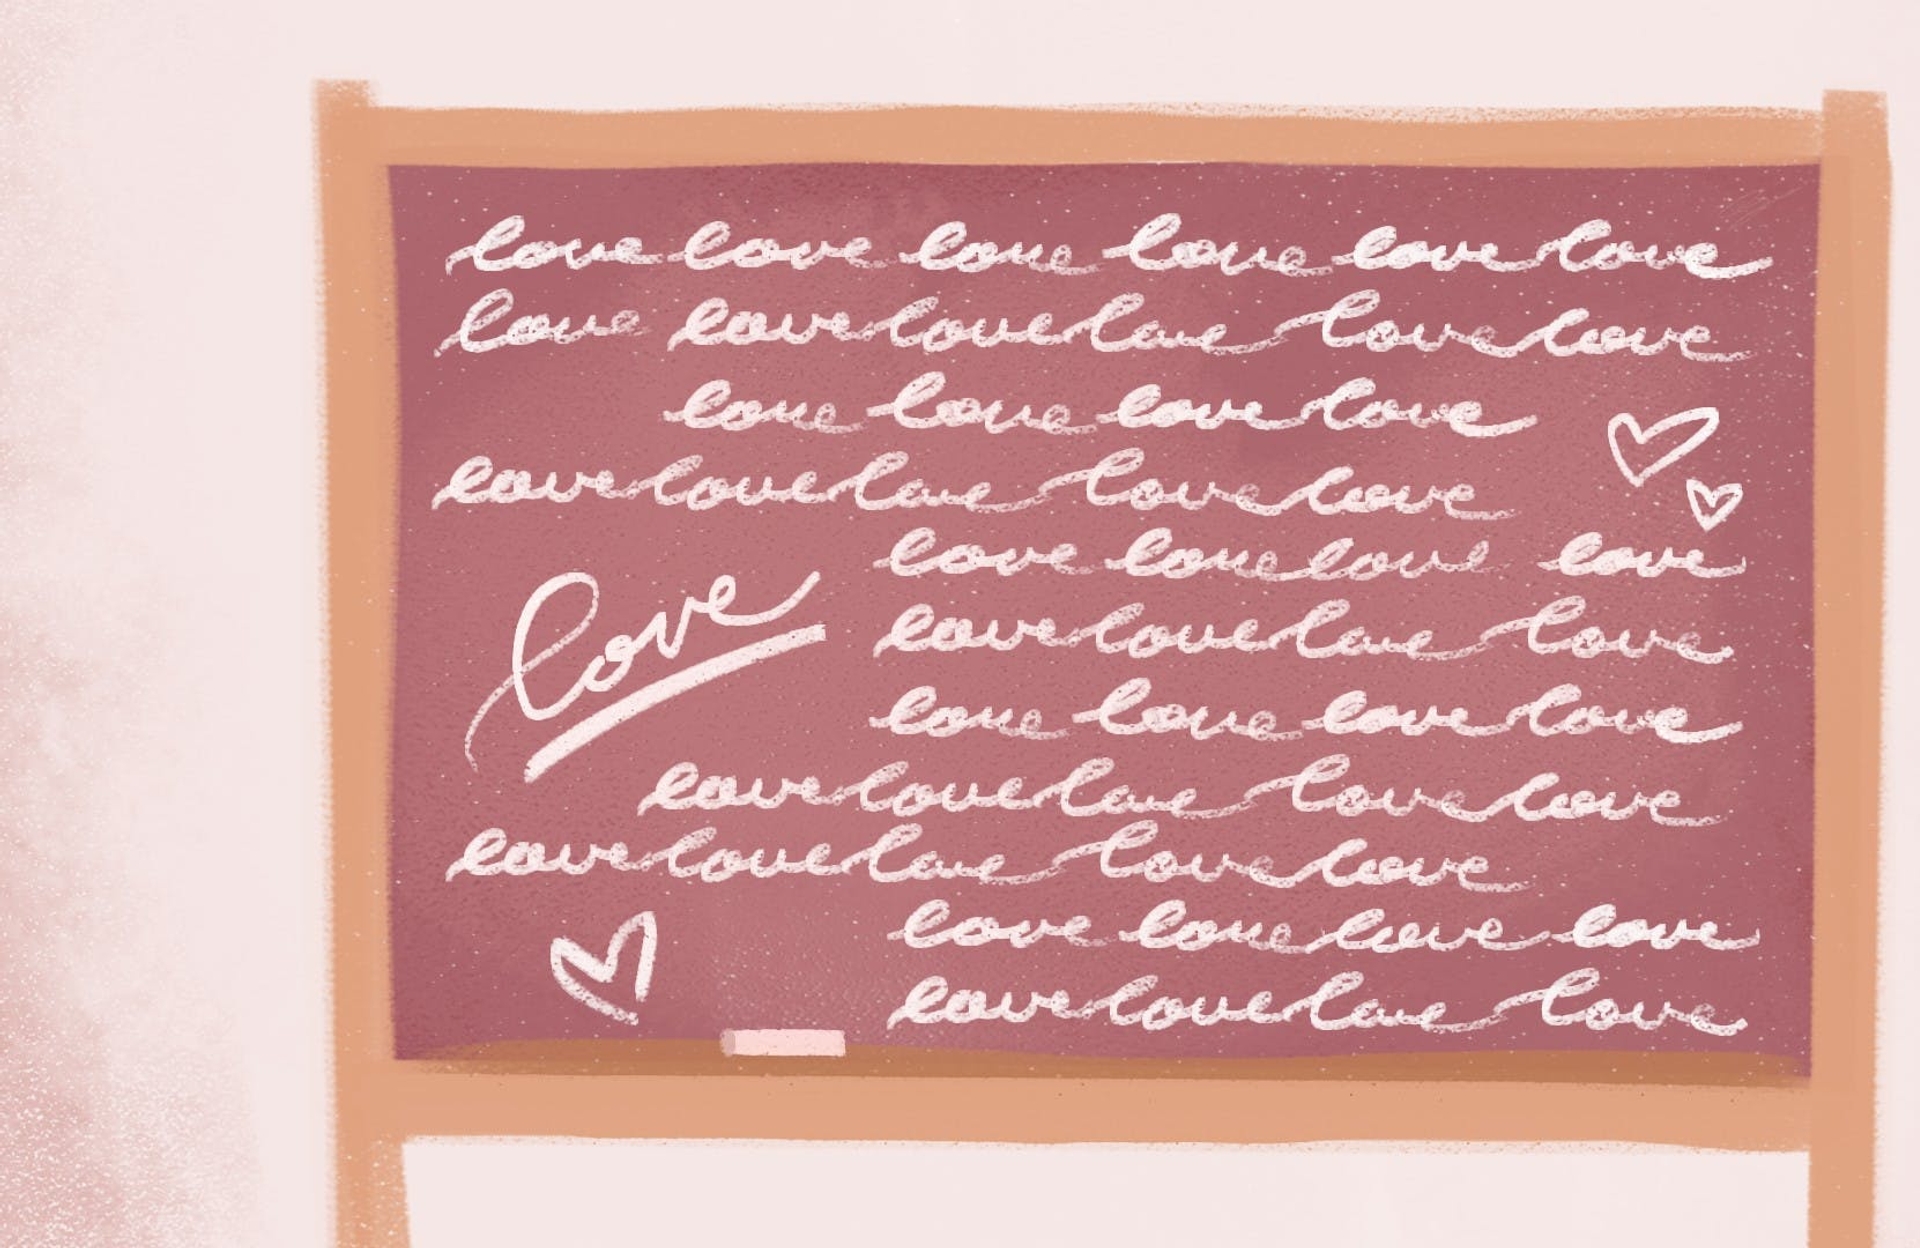 love love love love love love
love love love love love love
love love love love
love love love love love
love love love love
love
love love love love
love love love love
love love love love love
love love love love love
love love love love
love love love love